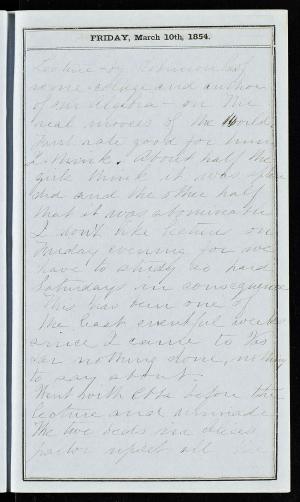 FRIDAY, March 10th, 1854.
Lecture by of
some college and author
of on the
real movers of the World.
First rate good for him
I think. About half the
girls think it was splen
did and the other half
that it was abominable
I don't like lectures on
Friday evening for we
have to study so hard
Saturdays in consequence
This has been one of
the least eventful weeks
since I came to this
nothing done, nothing
to say about.
Went with before the
lecture and
The two beds in
parlor upset all the